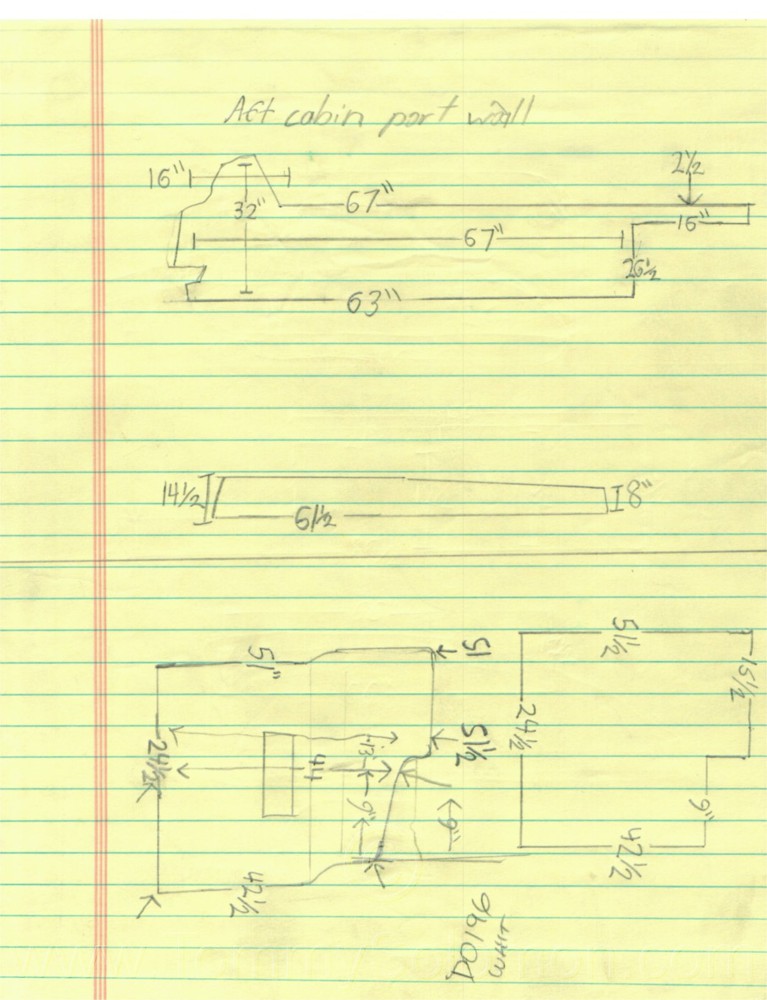 Aft cabin port wall
16"
32"
67"
2½
16"
67"
26½
63"
14½
61½
8"
51"
51
51½
24½
44
13"
9"
9"
42½
51½
15½
24½
9"
42½
D0196
WHIT